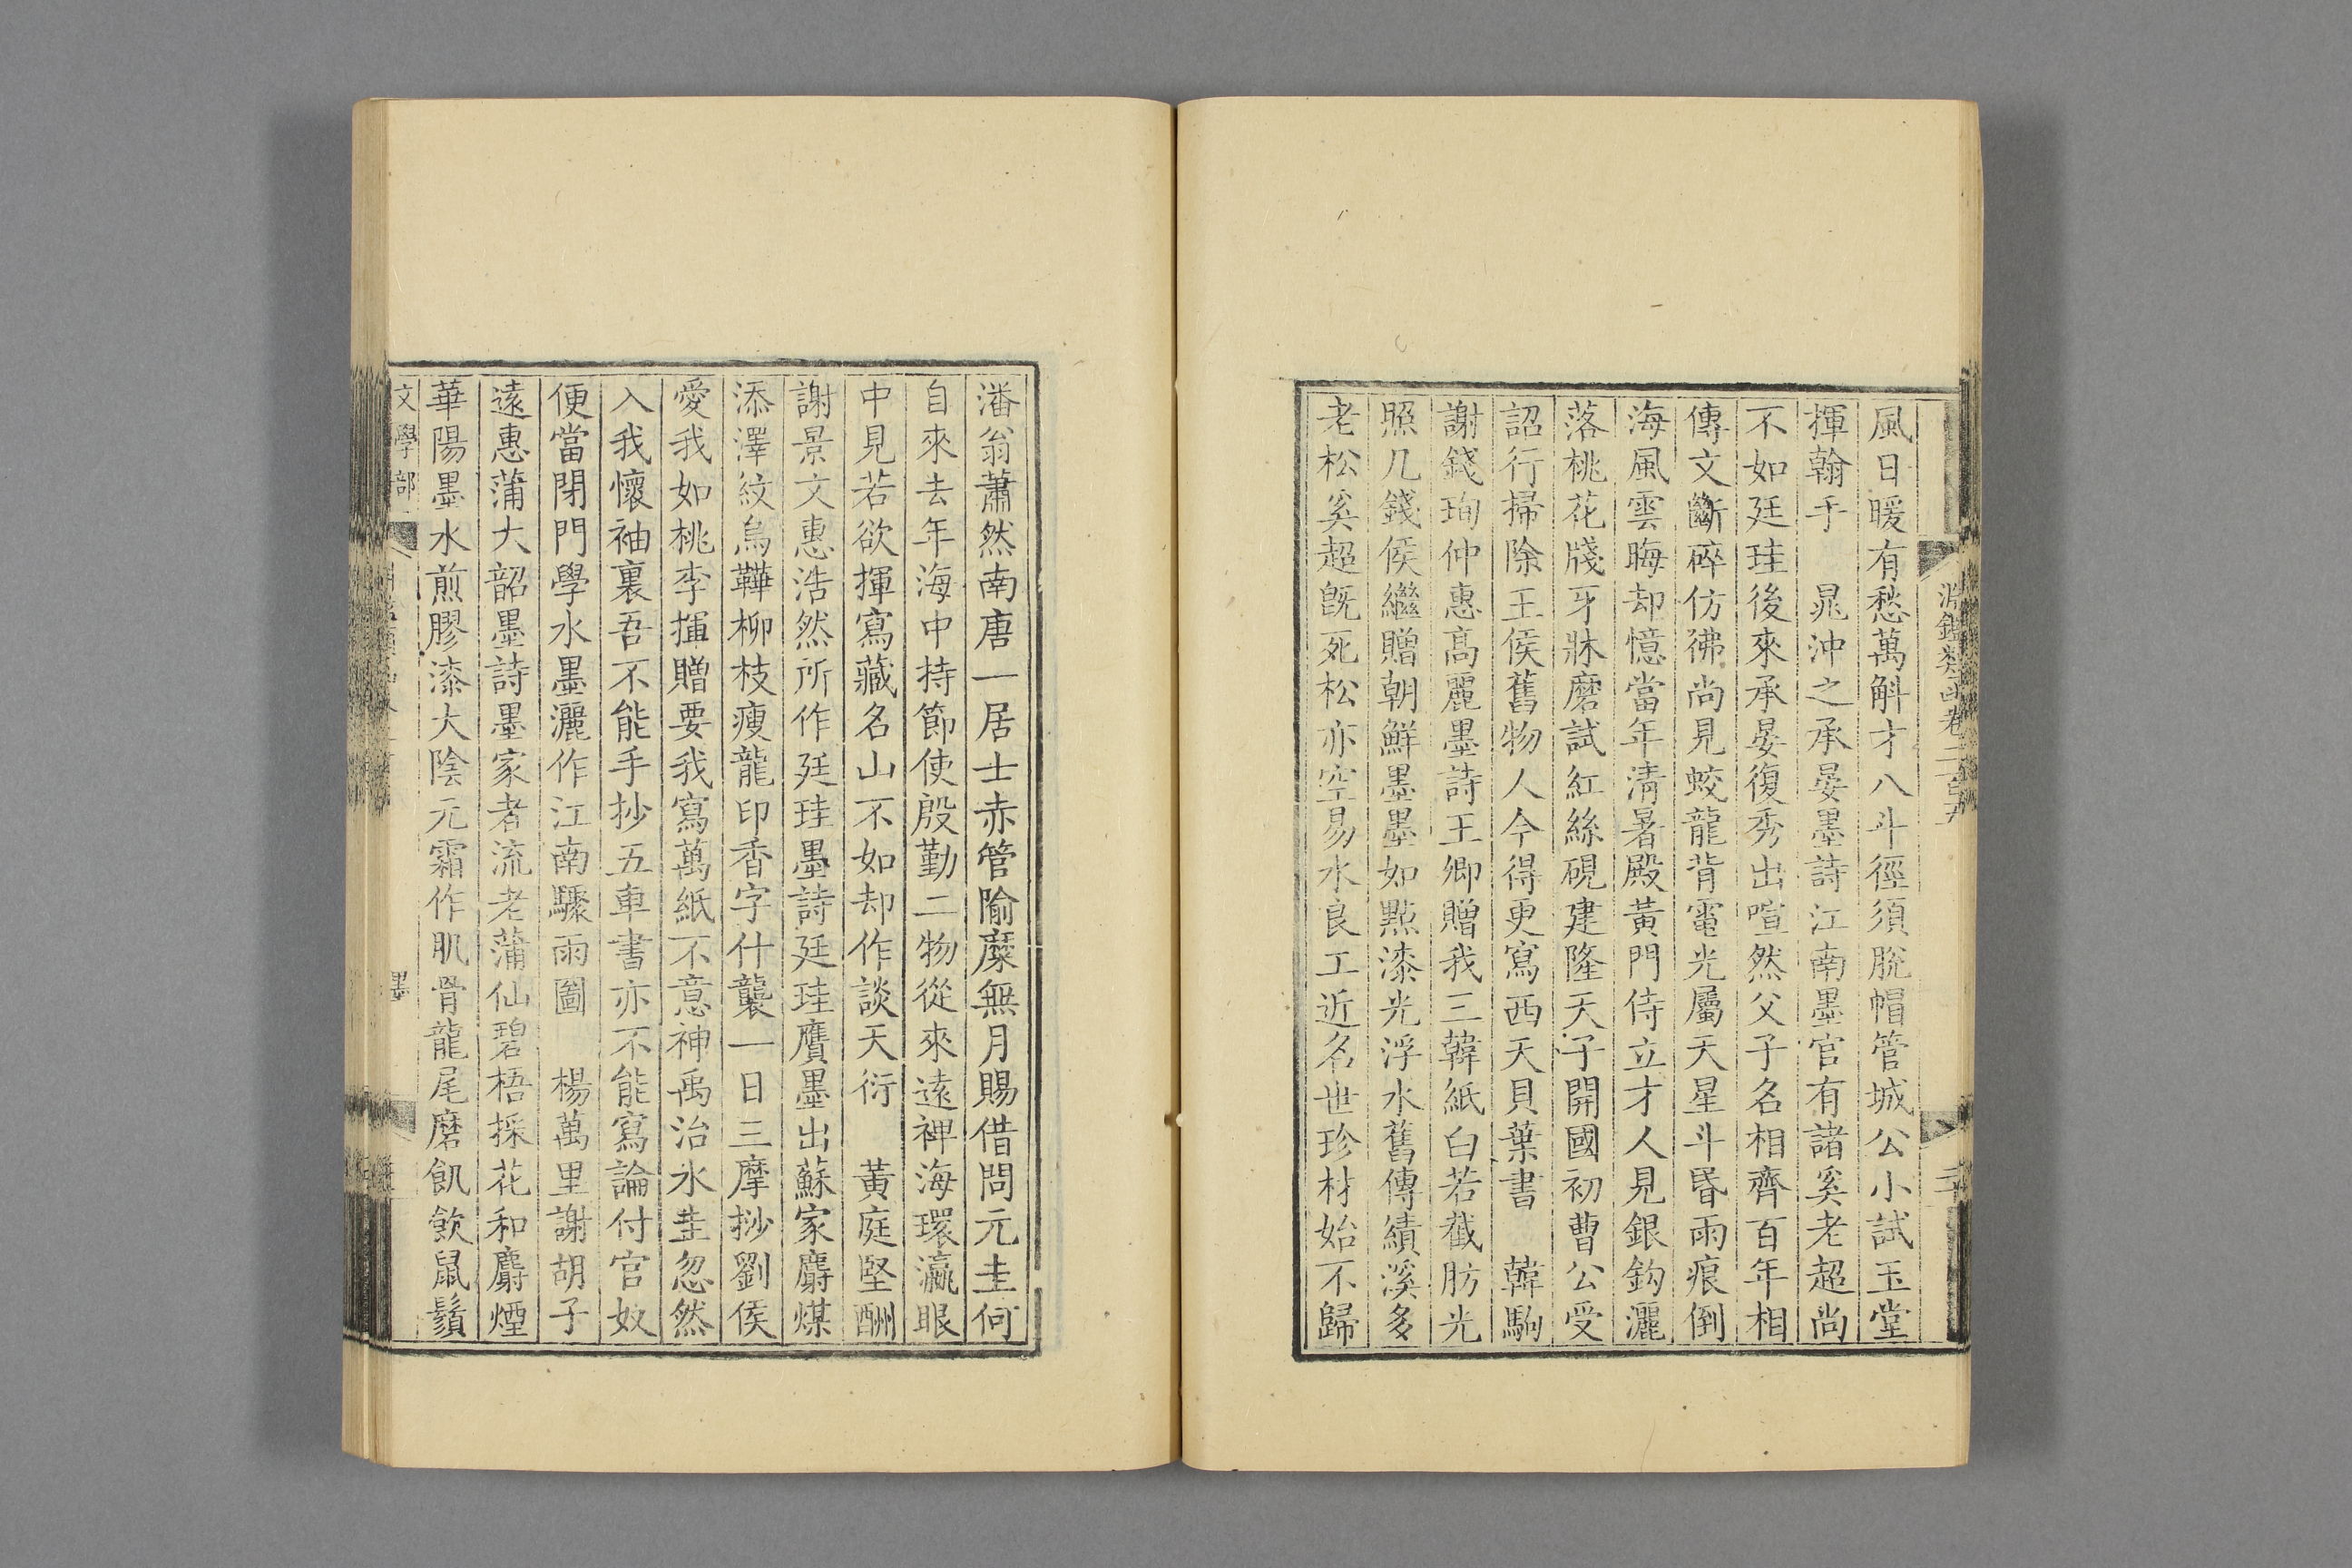 淵鑑類函卷二百五
風日暖有愁萬斛才八斗徑須脫帽管城公小試玉堂
揮翰手　晁沖之承晏墨詩江南墨官有諸奚老超尚
不如廷珪後來承晏復秀出喧然父子名相齊百年相
傳文斷碎仿彿尚見蛟龍背電光屬天星斗昏雨痕倒
海風雲晦却憶當年清暑殿黃門侍立才人見銀鈎灑
落桃花牋牙牀磨試紅絲硯建隆天子開國初曹公受
詔行掃除王侯舊物人今得更寫西天貝葉書　韓駒
謝錢珣仲惠高麗墨詩王卿贈我三韓紙白若截肪光
照几錢侯繼贈朝鮮墨墨如點漆光浮水舊傳績溪多
老松奚超旣死松亦空易水良工近名世珍材始不歸
潘翁蕭然南唐一居士赤管隃糜無月賜借問元圭何
自來去年海中持節使殷勤二物從來遠裨海環瀛眼
中見若欲揮寫藏名山不如却作談天衍　黃庭堅酬
謝景文惠浩然所作廷珪墨詩廷珪贗墨出蘇家麝煤
添澤紋烏韡柳枝瘦龍印香字什襲一日三摩挱劉侯
愛我如桃李揮贈要我寫萬紙不意神禹治水圭忽然
入我懷袖裏吾不能手抄五車書亦不能寫論付官奴
便當閉門學水墨灑作江南驟雨圖　楊萬里謝胡子
遠惠蒲大韶墨詩墨家者流老蒲仙碧梧採花和麝煙
華陽墨水煎膠漆大陰元霜作肌骨龍尾磨飢飲鼠鬚
文學部
墨